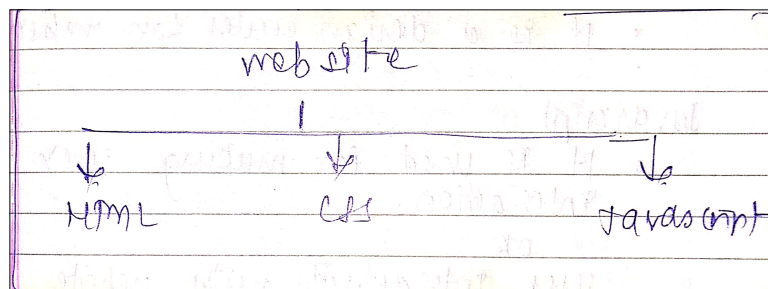 website
HTML CSS Javascript